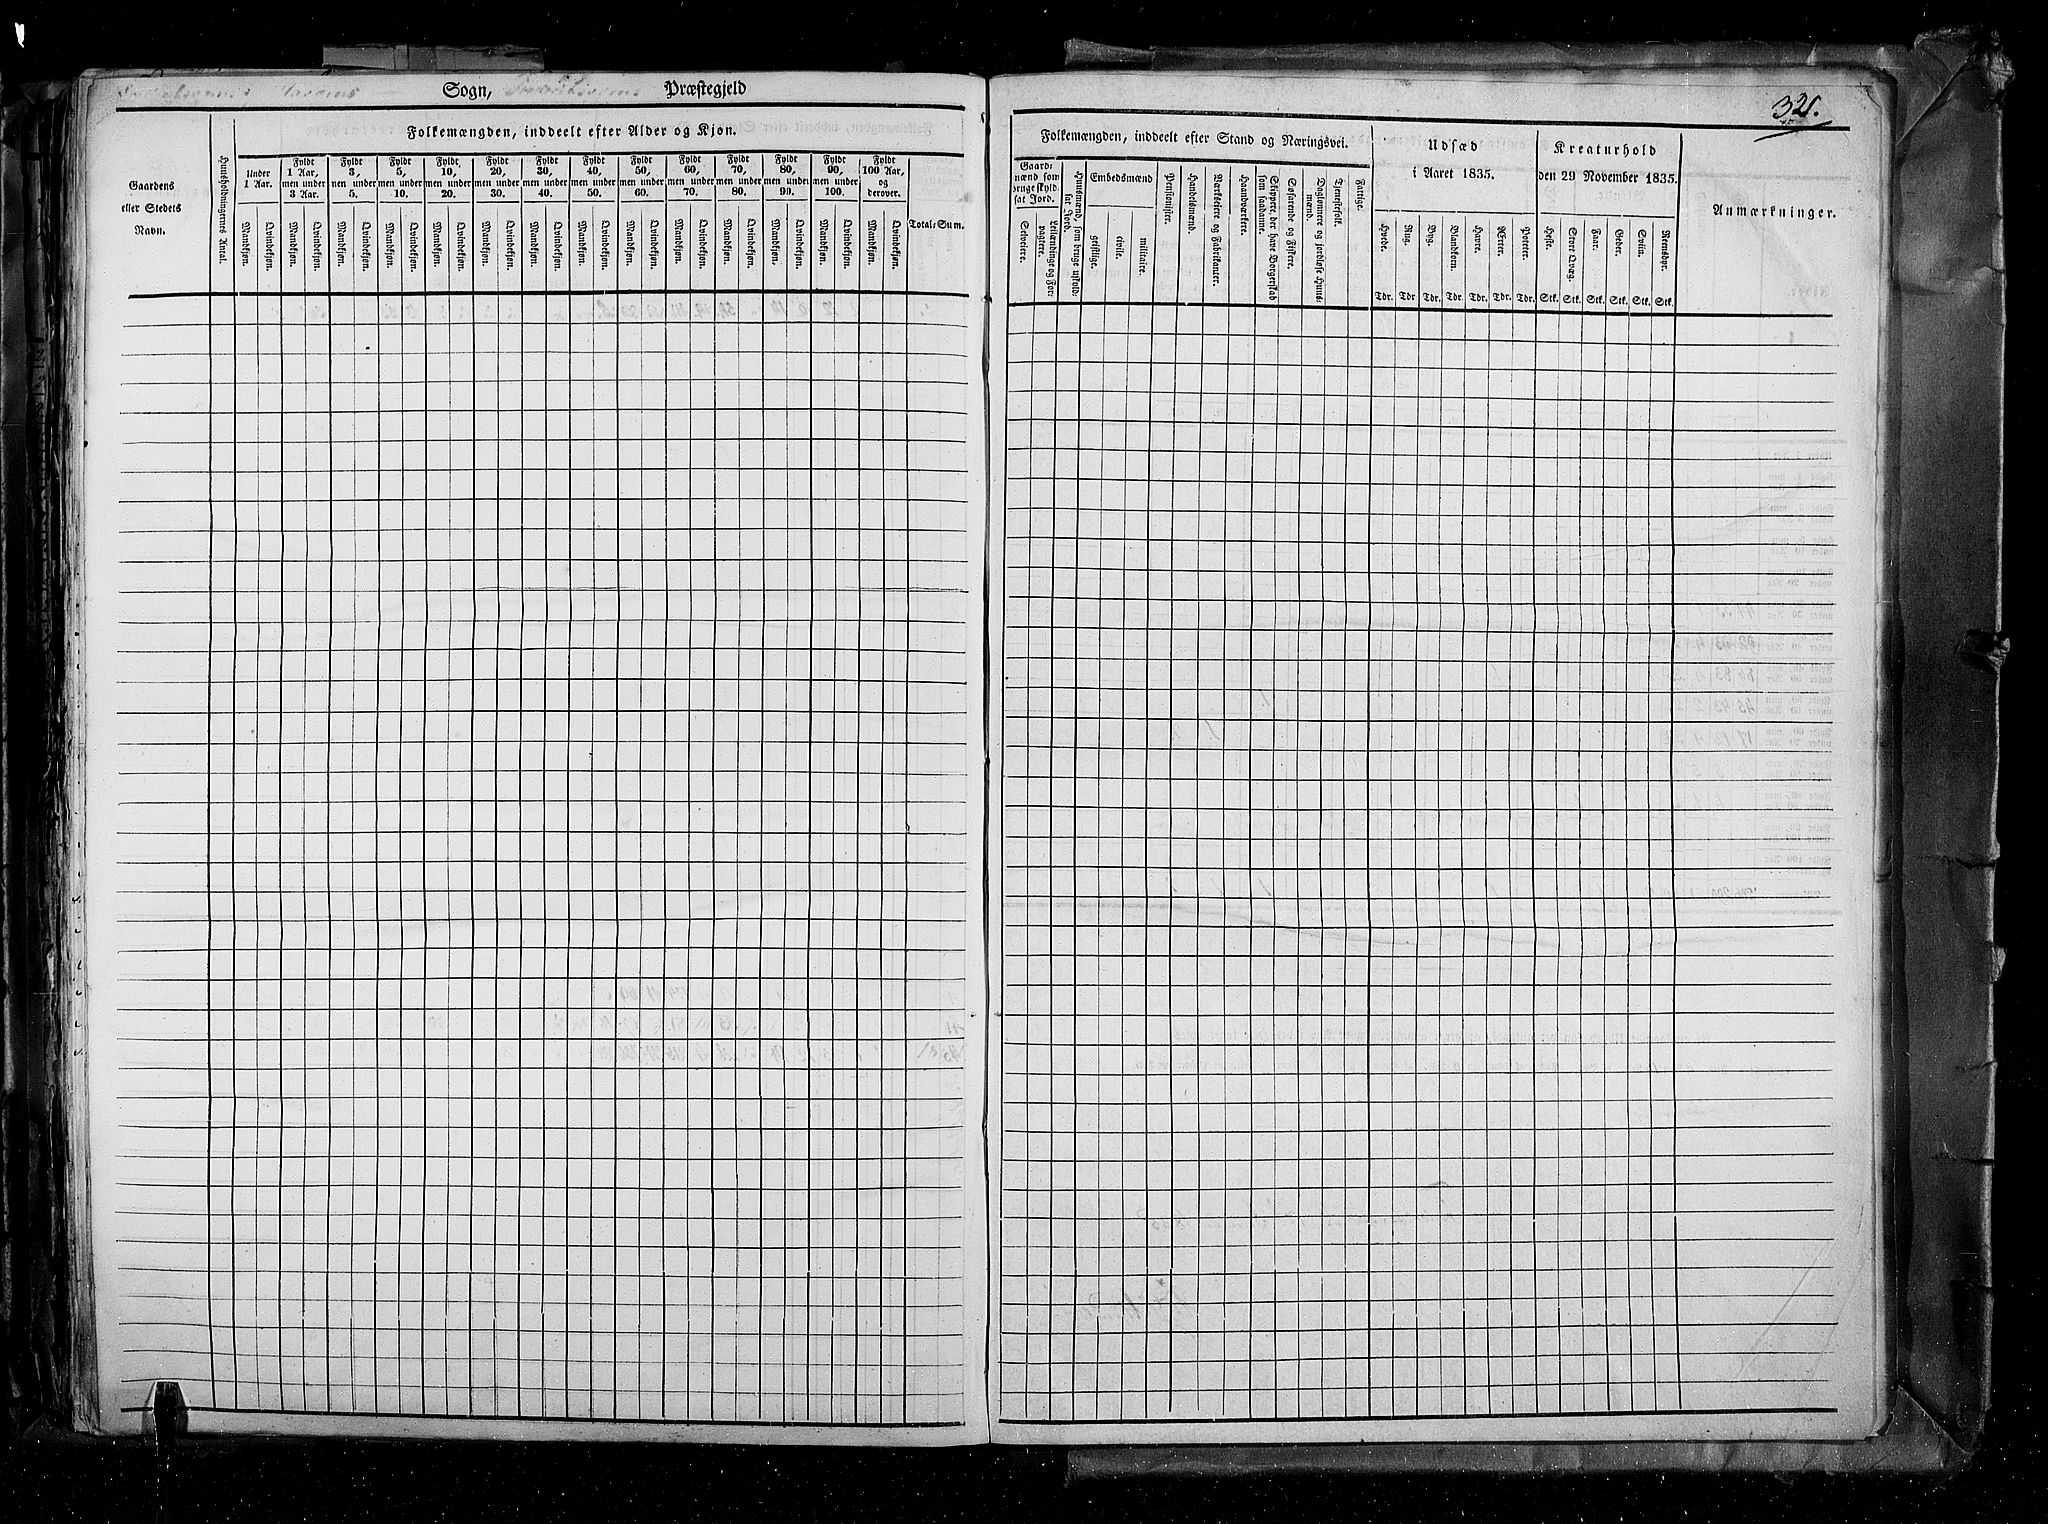 Sogn, Præstegjeld
321.
Folkemængden, inddeelt efter Alder og Kjøn.
Gaardens eller Stedets Navn.
Huusholdningernes Antal.
Under 1 Aar.
Fyldt 1 Aar, men under 3 Aar.
Fyldt 3, men under 5.
Fyldt 5, men under 10.
Fyldt 10, men under 20.
Fyldt 20, men under 30.
Fyldt 30, men under 40.
Fyldt 40, men under 50.
Fyldt 50, men under 60.
Fyldt 60, men under 70.
Fyldt 70, men under 80.
Fyldt 80, men under 90.
Fyldt 90, men under 100.
Fyldt 100 Aar, og derover.
Mandkjøn. Qvindekjøn. Mandkjøn. Qvindekjøn. Mandkjøn. Qvindekjøn. Mandkjøn. Qvindekjøn. Mandkjøn. Qvindekjøn. Mandkjøn. Qvindekjøn. Mandkjøn. Qvindekjøn. Mandkjøn. Qvindekjøn. Mandkjøn. Qvindekjøn. Mandkjøn. Qvindekjøn. Mandkjøn. Qvindekjøn. Mandkjøn. Qvindekjøn. Mandkjøn. Qvindekjøn. Mandkjøn. Qvindekjøn.
Total-Sum.
Folkemængden, inddeelt efter Stand og Næringsvei.
Gaardmænd som bruge skyldsat Jord.
Selveiere.
Leilændinge og Forpagtere.
Huusmænd, som bruge uskyldsat Jord.
Embedsmænd
geistlige.
civile.
militaire.
Pensionister.
Handelsmænd.
Værkseiere og Fabrikanter.
Haandværkere.
Skippere, der have Borgerskab som saadanne.
Søfarende og Fiskere.
Dagslønnere og jordløse Huusmænd.
Tjenestefolk.
Fattige.
Udsæd
i Aaret 1835.
Hvede. Rug. Byg. Blandkorn. Havre. Ærter. Poteter.
Tdr. Tdr Tdr. Tdr. Tdr. Tdr. Tdr.
Kreaturhold
den 29 November 1835.
Heste. Stort Qvæg. Faar. Geder. Sviin. Rensdyr.
Stk. Stk. Stk. Stk. Stk. Stk.
Anmærkninger.